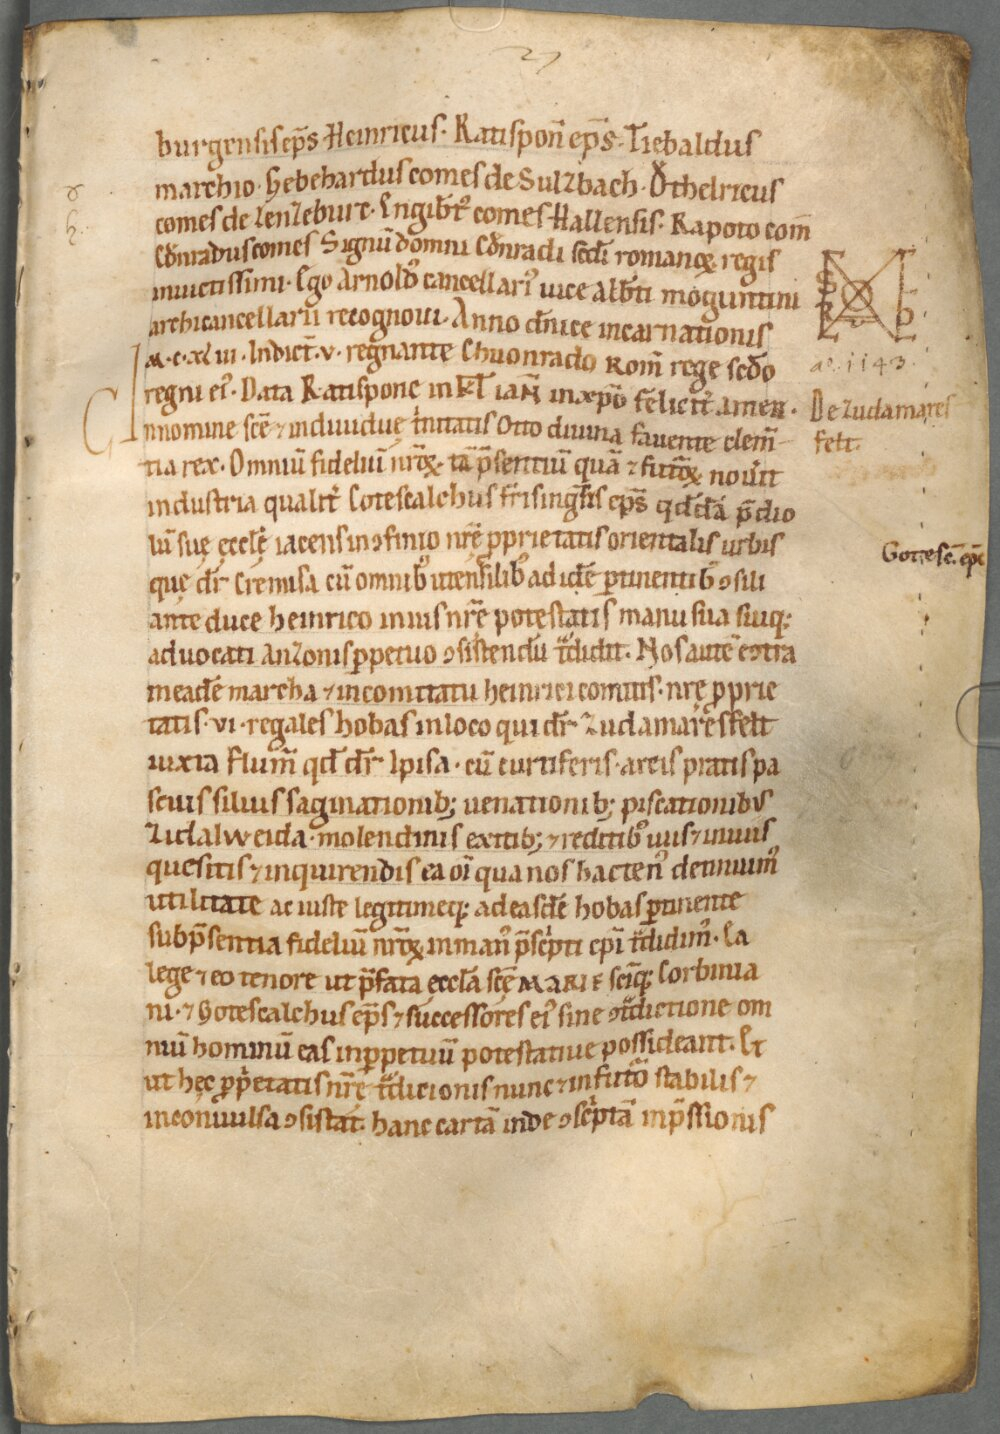 27
burgensis ep̄s Heinricus· Ratispon̄ ep̄s· Tiebaldus
marchio· Gebehardus comes de Sulzbach· Ȯthelricus
comes de Lenzeburc· Engilb̄t᾽ comes Hallensis· Rapoto com̄
Cv̊nradus comes Signū domni Cv̊nradi sc̄di romanoꝝ regis
inuictissimi· Ego Arnold᾽ cancellari᾽ uice alb̄ti moguntini
archicancellarii recognoui· Anno dn̄ice incarnationis
M·C·XLIII· Indict̄·V· regnante Chuonrado Rom̄ rege sc̄do
a͞o· 1143·
regni ei᾽· Data Ratispone in kl̄ ian̄ in xp̄o felicit̄ amen·
De Zudamares
felt·
Innomine sc̄e ⁊ indiuidue t̄nitatis Otto diuina fauente clem̄
tia rex· Omniū fideliū nr̄oꝝ tā p̄sentiū quā ⁊ futur̄oꝝ nou̓it
industria qualit̄ Gotescalchus frisinḡsis ep̄s qd̄dā p̄dio
Gottesc· ep̄c
lū suę ęcclę̄ iacens in ꝯfinio nr̄ę ꝓprietatis orientalis urbis
quę dr̄ Cremisa cū omnib᾽ utensilib᾽ ad idē ꝑtinentib᾽ ꝯsili
ante duce heinrico in ius nr̄ę potestatis manu sua suiq;
aduocati Anzonis ꝑpetuo ꝯsistendū t̄didit· Nos autē ecͦtra
in eadē marcha ⁊ in comitatu heinrici comitis· nr̄ę ꝓprie
tatis· vi· regales hobas in loco qui dr̄ Zudamaresfelt
iuxta flum̄ qd̄ dr̄ Ipisa· cū curtiferis· areis pratis pa
scuis siluis saginationib; uenationib; piscationibus
Zidalweida· molendinis exitib; ⁊ reditib᾽ uiis ⁊ inuiis
quesitis ⁊ inquirendis ea oī qua nos hacten᾽ detinuim᾽
utilitate ac iuste legitimeq; ad easdē hobas ꝑtinente
sub p̄sentia fideliū nr̄oꝝ in man᾽ p̄sc̓pti ep̄i t̄didim᾽· Ea
lege ⁊ eo tenore ut p̄fata eccl̄a sc̄ę MARIE sc̄iq; Corbinia
ni· ⁊ Gotescalchus ep̄s ⁊ successores ei᾽ sine ꝯt̄dictione om
niū hominū eas in ꝑpetuū potestatiue possideant· Et
ut hęc ꝓp̓etatis nr̄ę t̄dicionis nunc ⁊ in futuro stabilis ⁊
inconuulsa ꝯsistat· hanc cartā inde ꝯsc̓ptā inp̄ssionis